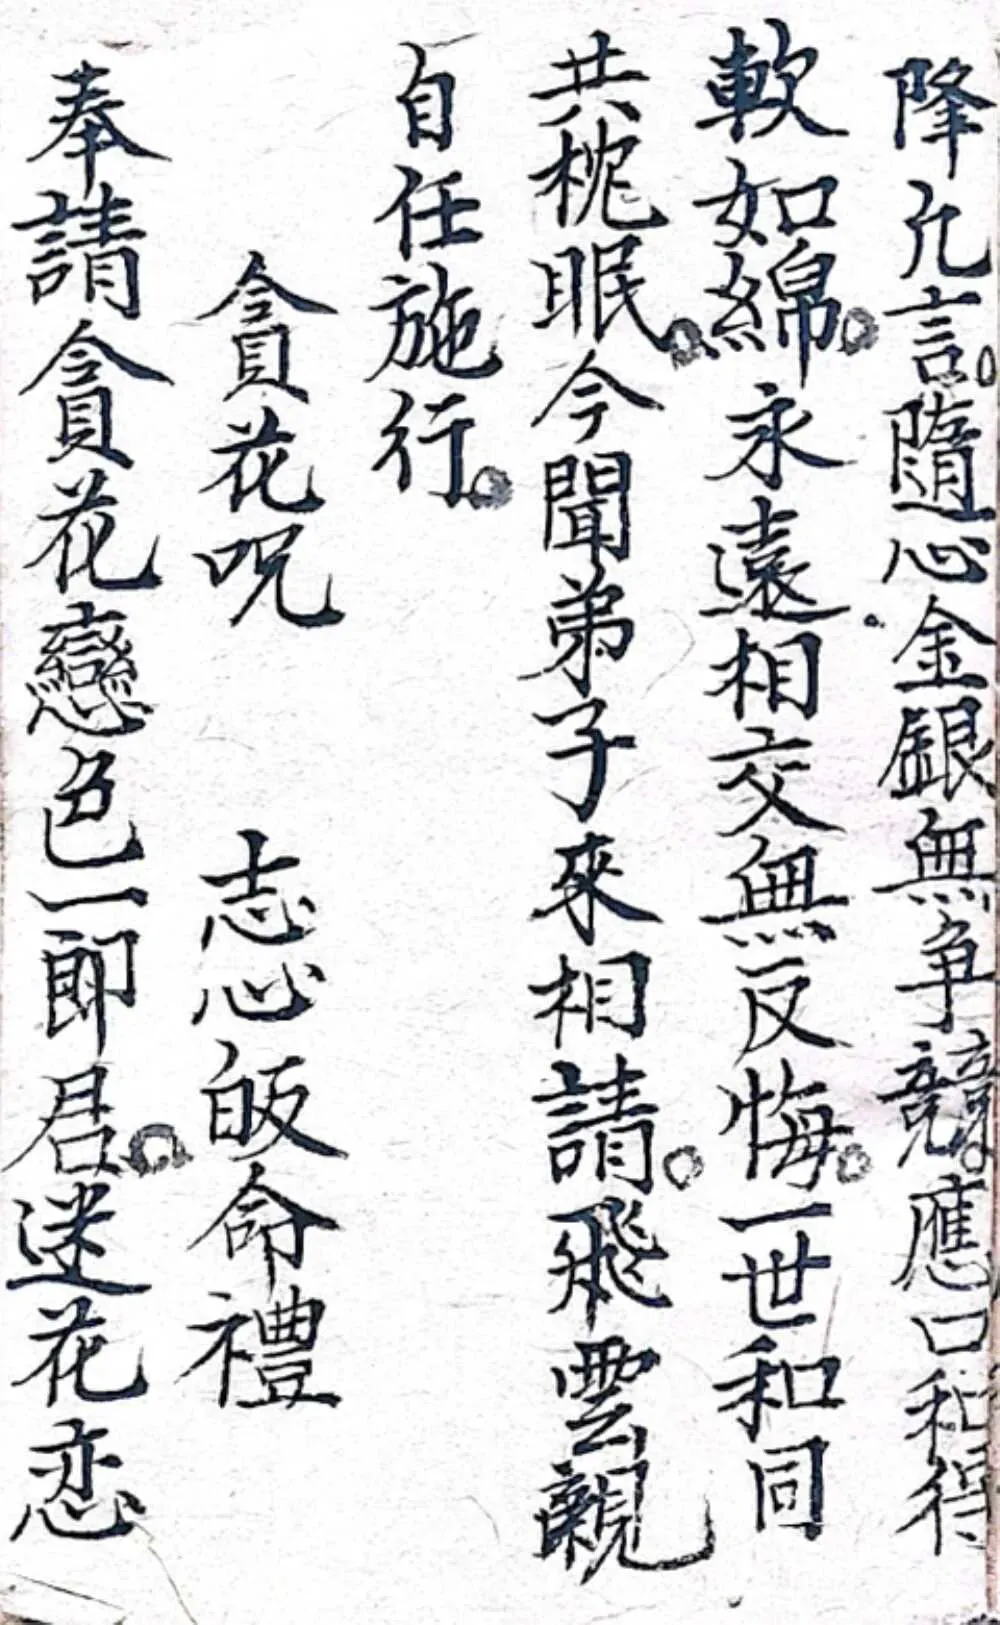 降允言。隨心金銀無争競。應口和得
軟如綿。永遠相交無反悔。一世和同
共枕眠。今聞弟子來相請。飛雲親
自任施行。
貪花呪　志心皈命禮
奉請貪花戀色一郎君。迷花恋